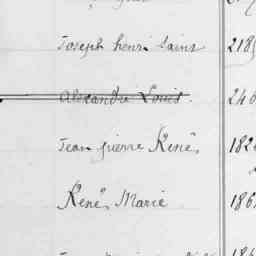 Joseph henri Saint 218
Alexandre Louis. 246
Jean pierre René, 182
René, Marie 186